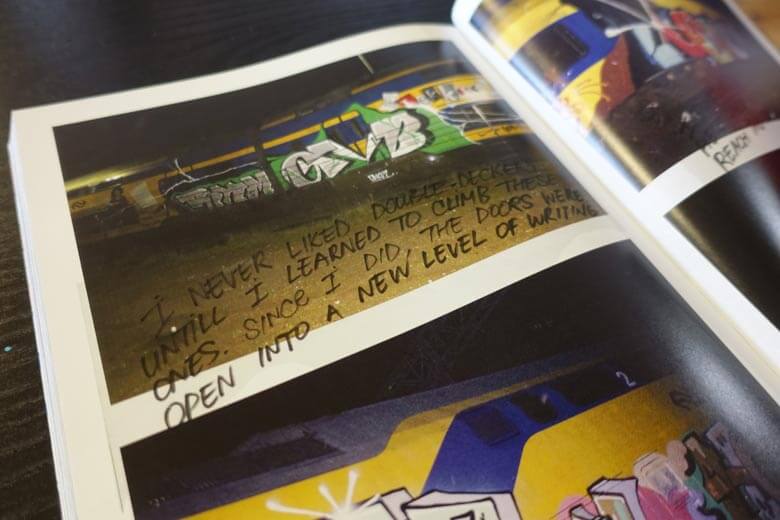 I NEVER LIKED DOUBLE-DECKERS
UNTILL I LEARNED TO CLIMB THESE
ONES. SINCE I DID, THE DOORS WERE
OPEN INTO A NEW LEVEL OF WRITING
REACH
2